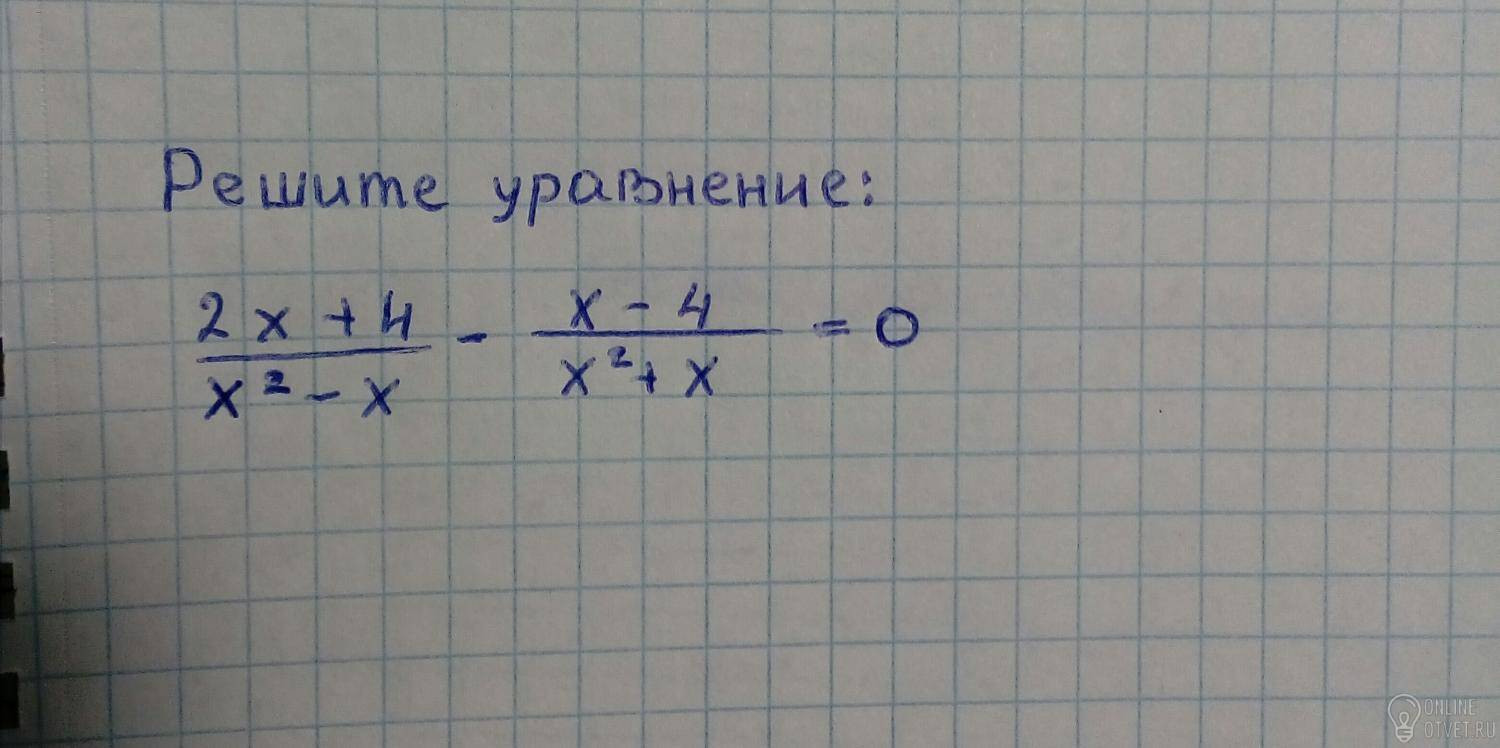 Решите уравнение:
2x + 4 / x² - x - x - 4 / x² + x = 0
ONLINE
OTVET.RU